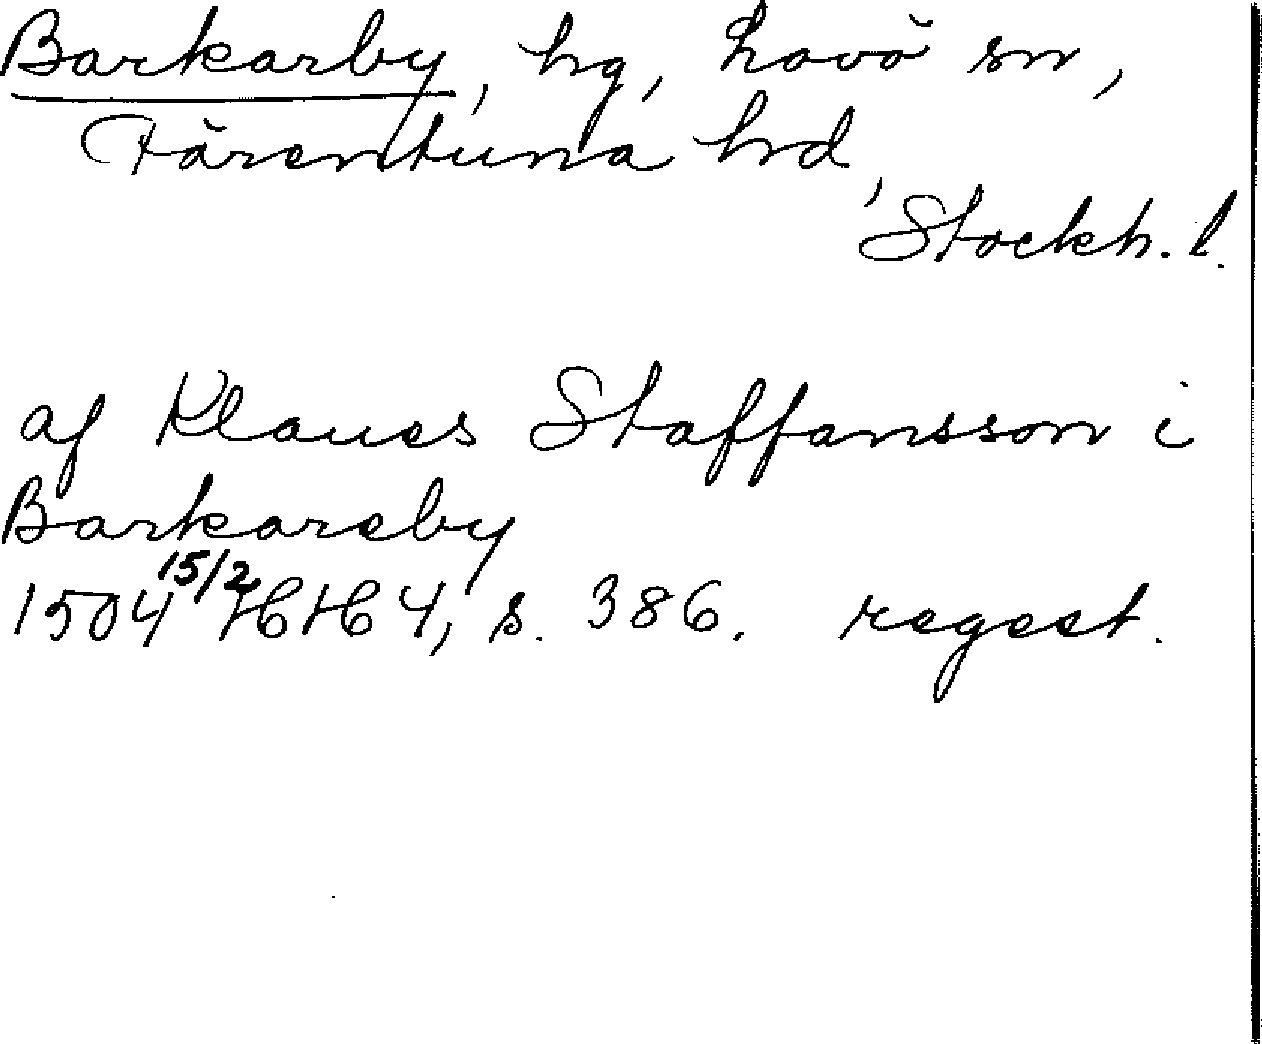 Barkarby, hg, Lovö sn,
Färentuna hd,
Stockh. l.
af Klaues Staffansson i
Barkareby
1504 15/2 HH 4, s. 386. regest.